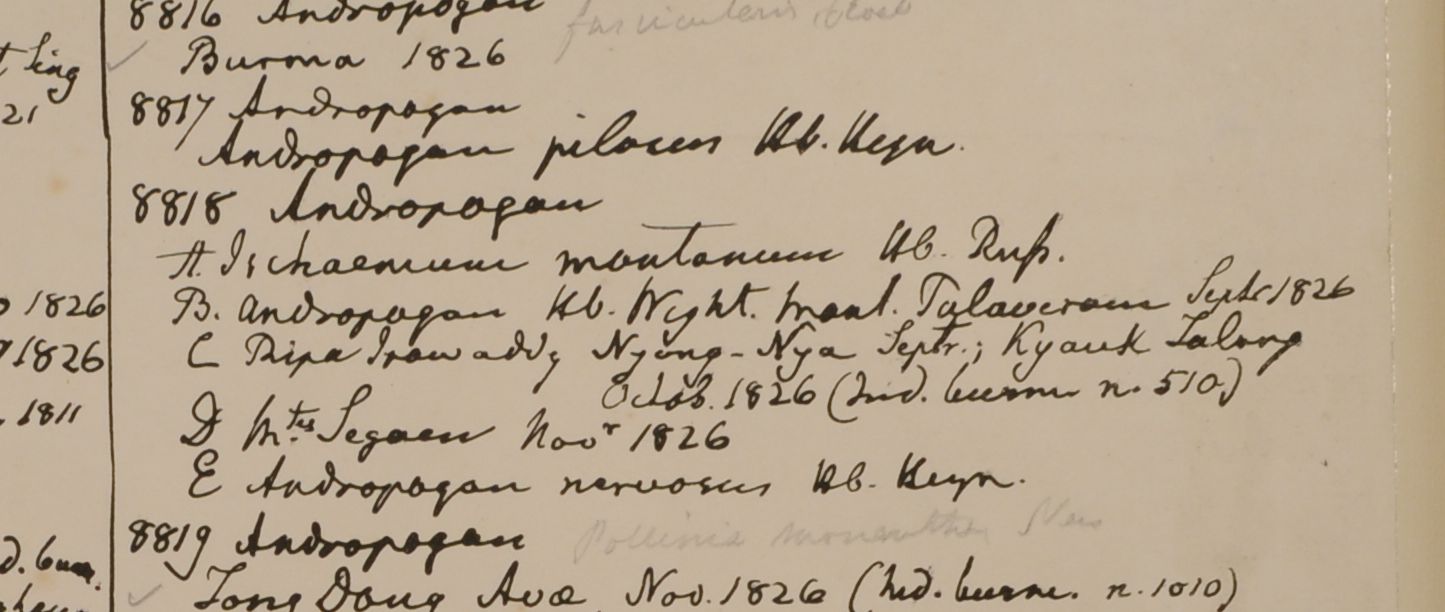 t Sing
21
1826
1826
1811
d. burm.
8816 Andropogon fascicularis
Burma 1826
8817 Andropogon
Andropogon pilosus Hb. Heyn.
8818 Andropogon
A. Ischaemum montanum Hb. Russ.
B. Andropogon Hb. Wight. mont. Talaveram Septr 1826
C Ripa Irawaddy Nyong-Nya Septr.; Kyauk Talong
Octob. 1826 (hid. burm n. 510)
D Mtes Segaen Novr 1826
E Andropogon nervosus Hb. Heyn.
8819 Andropogon Pollinia monantha Nees
Tong Dong Avæ Nov. 1826 (hid. burm. n. 1010)